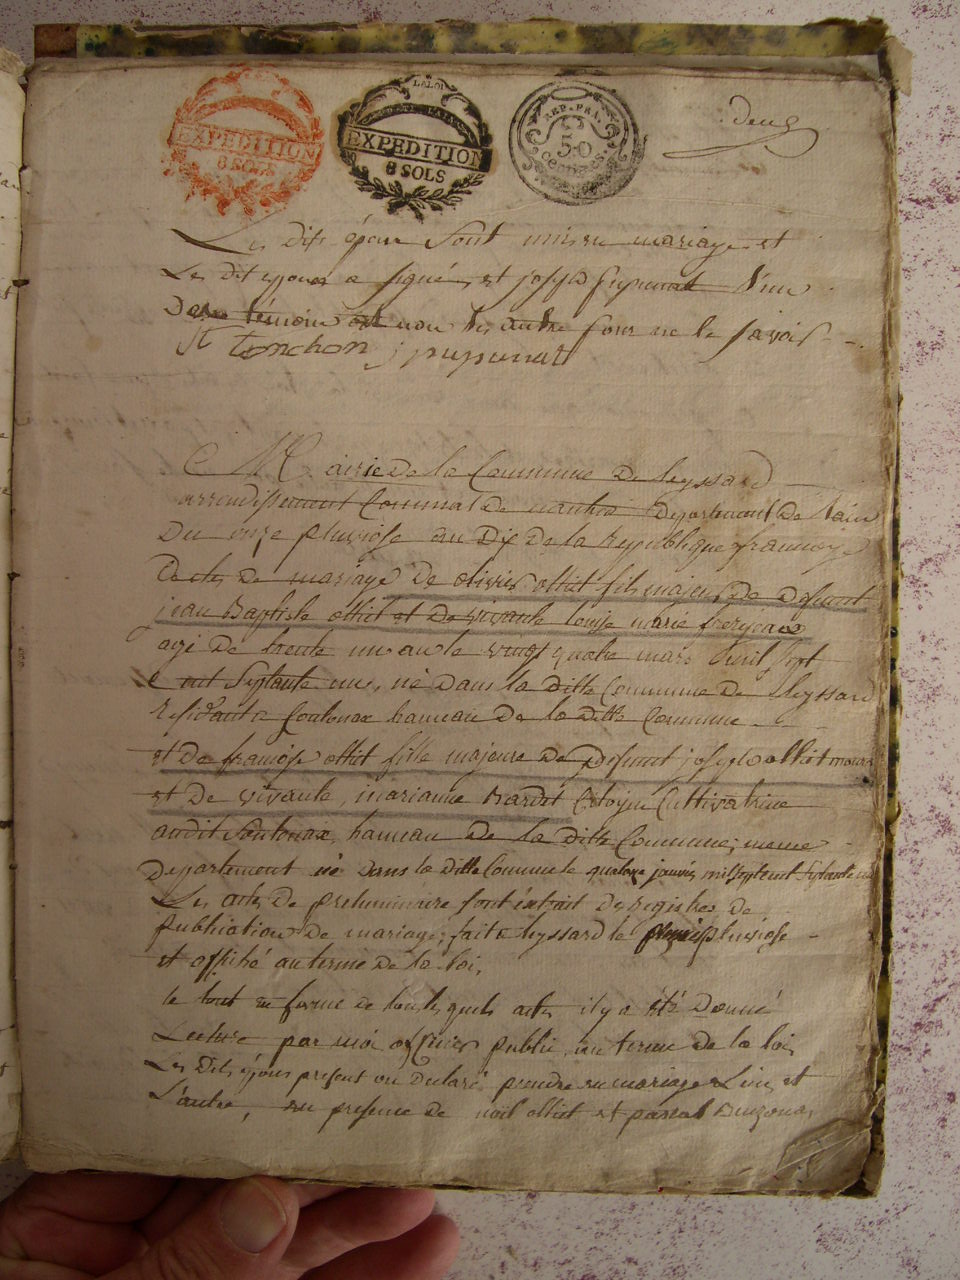 LA LOI
EXPEDITION
8 SOLS
EXPEDITION
8 SOLS
REP. FRA.
50
centimes.
deux
Les dits épous sont unis en mariage et
Les dit epoux a signé, et joseph puponnat l'un
Des témoin et non les autre pour ne le savoir
tonchon j puponnat
Mairie De la Commune De leyssard
arrondissement Communal De nantua Département De Lain
Du onze pluviose an Dix De la Republique francoise
acte De mariage De olivier ottiot fils majeur De Defunt
jean Baptiste ottiot et De vivante louise marie
agé De trente un an le vingt quatre mars Mil Sept
Cent Septante un, né Dans la Ditte Commune De Leyssard
Residant a Soulonax hameau De la Ditte Commune
et De francoise ottiot fille majeure De Defunt joseph ottiot
et De vivante, marianne Cultivatrice
audit Soulonax, hameau De la Ditte Commune, meme
Departement né Dans la Ditte Commune le quatorze janvier mil sept cent Septante un
Les actes De preliminaire sont extrait De registres De
Publication De mariage, fait a leyssard le pluviose
et affiché au terme De la loi,
le tout en forme De tous les quels actes il y a été Donné
Lecture par moi officier public, au terme De la loi,
Les Dits épous present on Declaré prendre en mariage L'un et
L'autre, en presence De noel ottiot et pascal